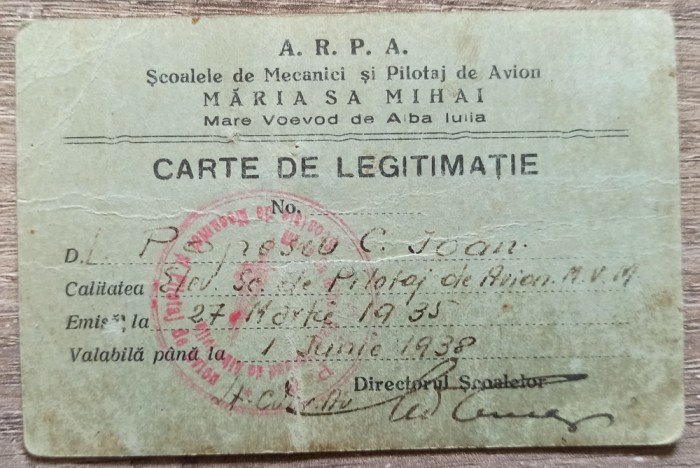 A. R. P. A.
Școalele de Mecanici și Pilotaj de Avion
MĂRIA SA MIHAI
Mare Voevod de Alba Iulia
CARTE DE LEGITIMAȚIE
No.
D.L. Popescu C. Ioan.
Calitatea Elev. Sc. de Pilotaj de Avion. M. V. M
Emisă la 27 Martie 1935
Valabilă până la 1 Iunie 1938
Directorul Școalelor